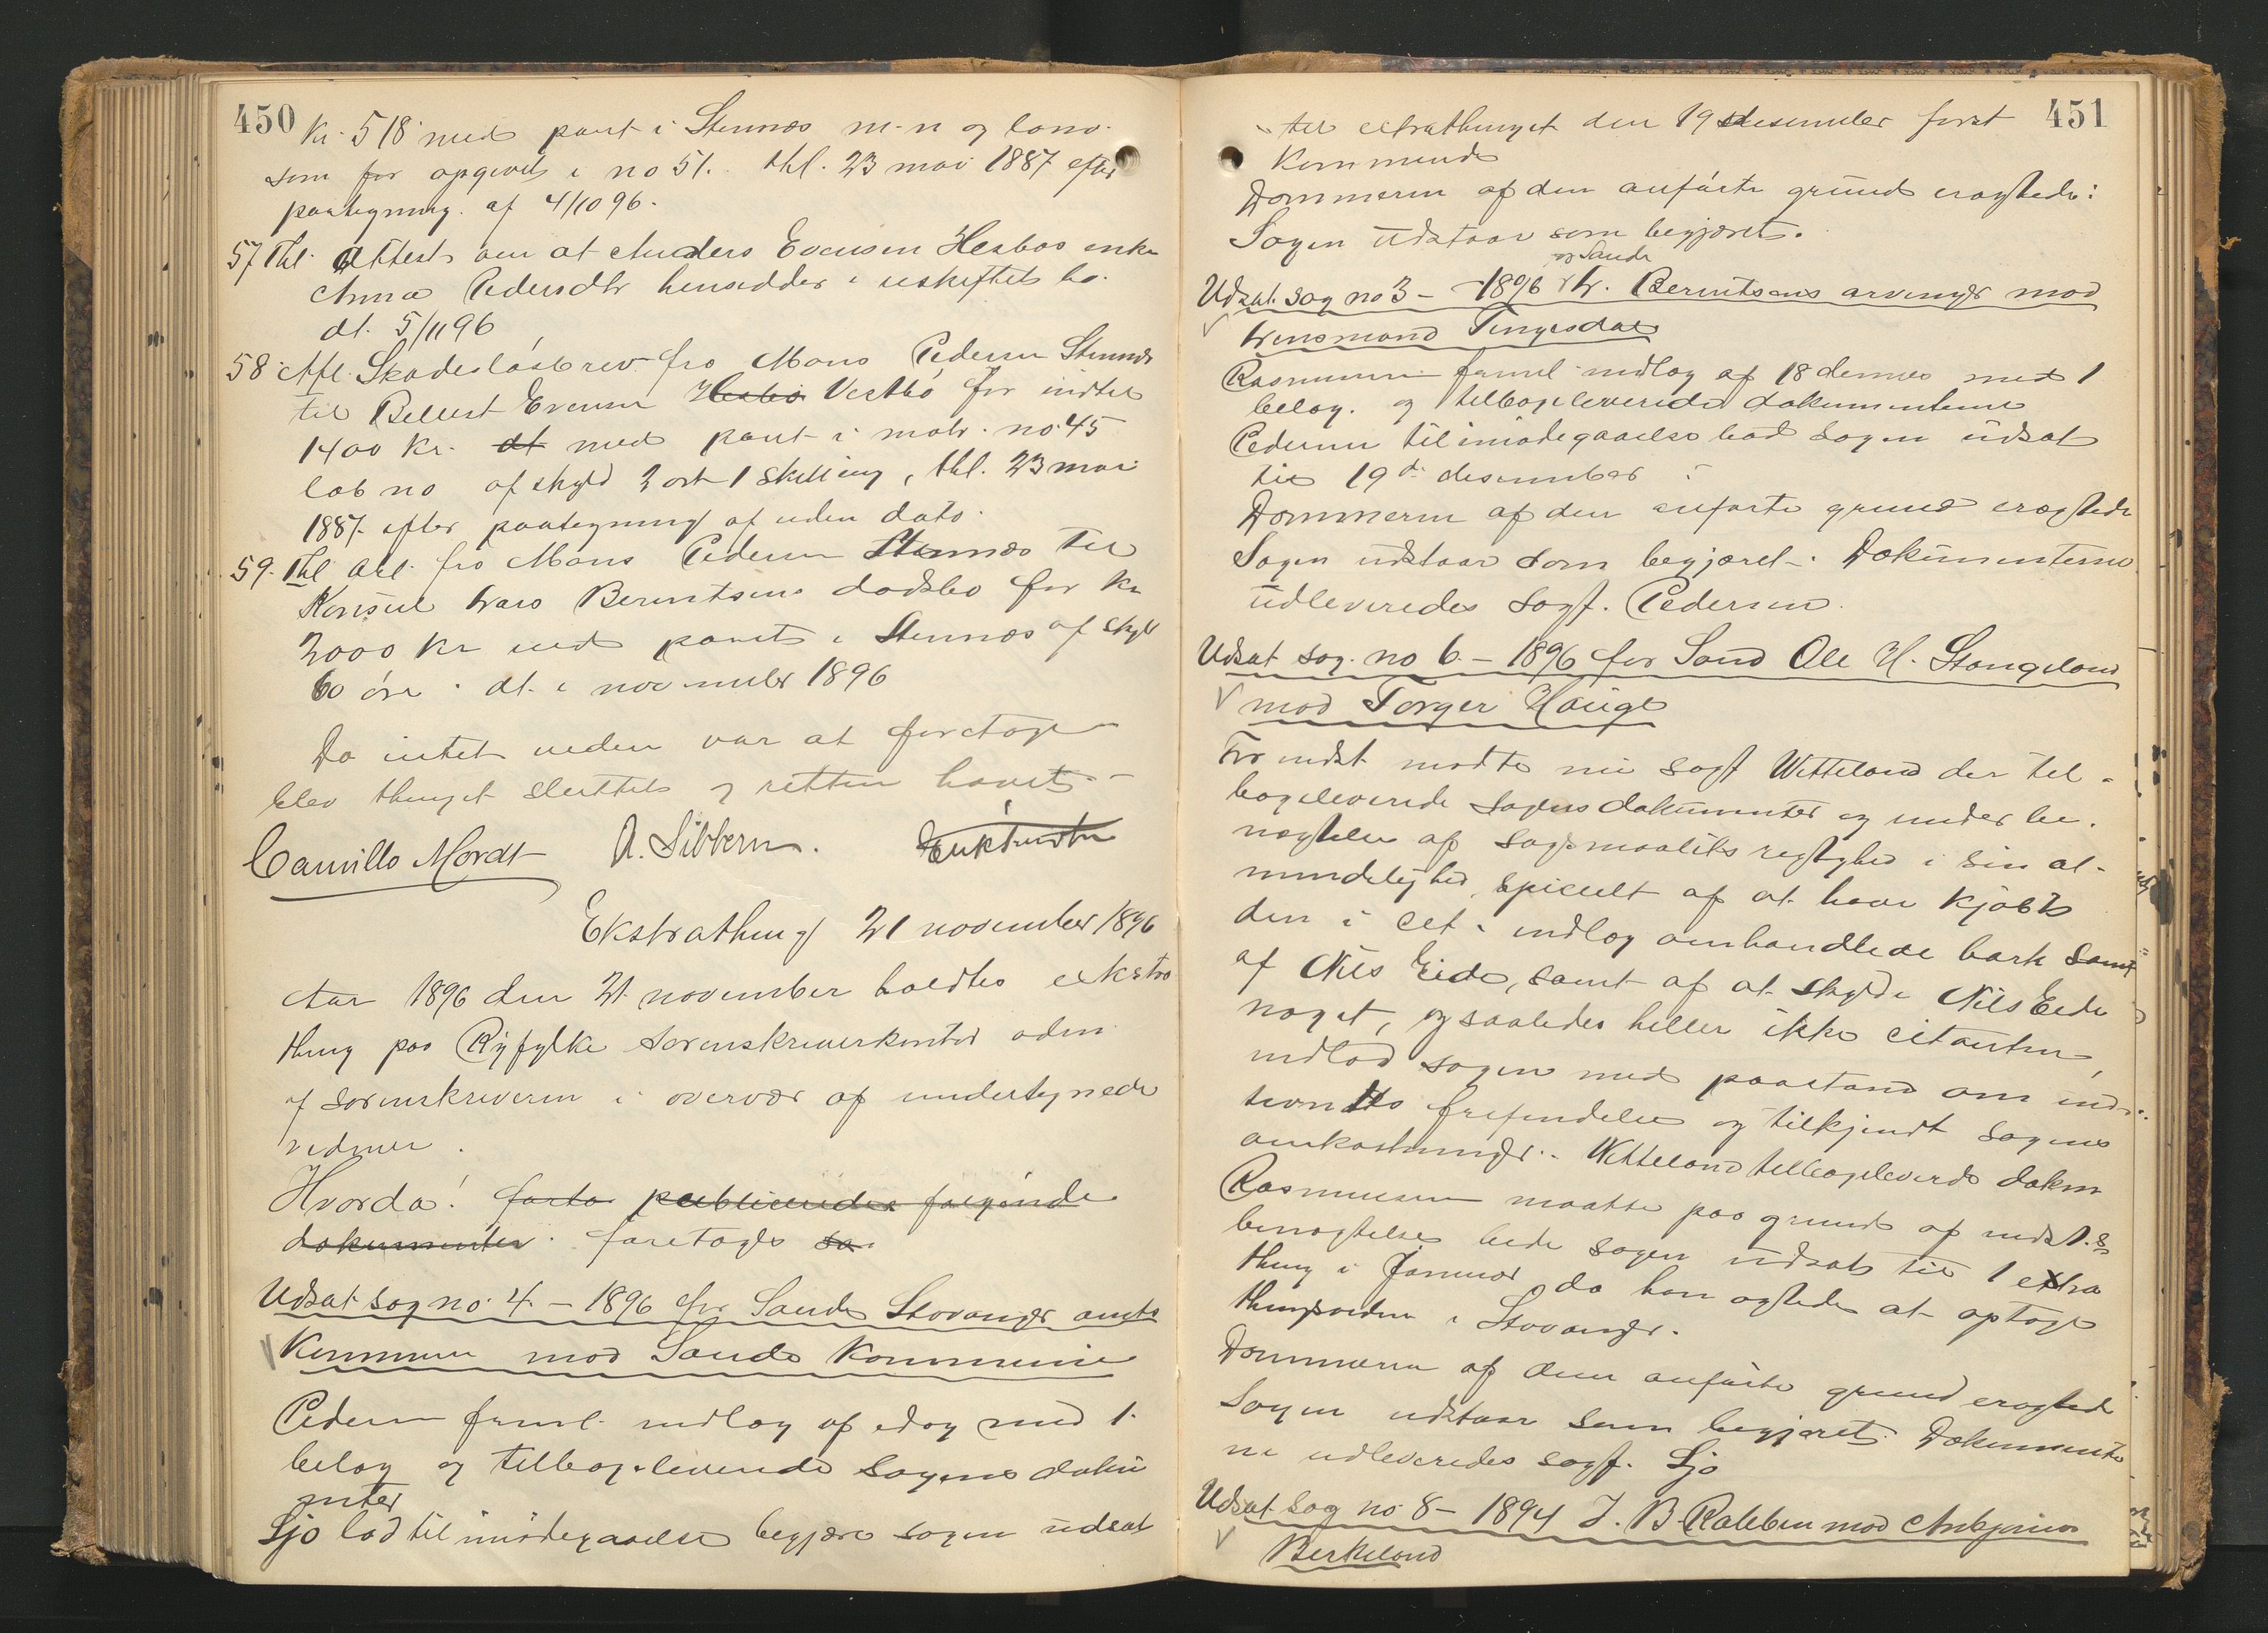 450
Kr. 518 med pant i Stennæs m. n og
som før opgivet i no 51. thl. 23 mai 1887 efter
paategning af 4/10 96.
57 Thl. Attest om at Anders Evensen Hesbøs enke
Anna Pedersdtr hensidder i uskiftet bo.
dt. 5/11 96
58 Afl. Skadesløsbrev fra Mons Pedersen Stennæs
til Bellest Evensen Hesbø Vestbø for indtil
1400 kr. dt med pant i matr. no. 45
løb no af skyld 2 ort 1 skilling, thl. 23 mai
1887. efter paategning af uden dato.
59. Thl. Obl. fra Mons Pedersen Stennæs til
Konsul Lars Berentsens dødsbo for kr
2000 kr med pant i Stennæs af skyld
60 øre. dt. i november 1896
Da intet videre var at foretage
blev thinget sluttet og retten hævet.
Camillo Mordt A. Sibbern.
Ekstrathing 21 november 1896
Aar 1896 den 21. november holdtes ekstra
thing paa Ryfylke sorenskriverkontor
af sorenskriveren i overvær af undertegnede
vidner.
Hvorda! publiceredes følgende
dokumenter. foretoges sa
Udsat sag no. 4. – 1896 for Sande Stavanger amts
Kommune mod Sande Kommune
Pedersen freml. indlæg af idag med 1.
belæg og tilbageleverede sagens doku
menter
Sjo lod til imødegaaelse begjære sagen udsat
451
til extrathinget den 19 desember først
kommende
Dommeren af den anførte grund eragtede:
Sagen udstaar som begjæret.
og Sande
Udsat sag no 3 – 1896 Berentsens arvinger mod
Lensmand Tengesdal
Rasmussen freml. indlæg af 18 dennes med 1
belæg. og tilbageleverede dokumenterne
Pedersen til imødegaaelse bad sagen udsat
til 19de desember
Dommeren af den anførte grund eragtede
Sagen udstaar som begjæret. Dokumenterne
udleveredes sagf. Pedersen.
Udsat sag. no 6. – 1896 for Sand Ole H. Stangeland
mod Torger Hauge
For indst mødte nu sagf Vetteland der til-
bageleverede sagens dokumenter og under be-
nægtelse af søgsmaalets rigtighed i sin al-
mindelighed, specielt af at have kjøbt
den i cet. indlæg omhandlede bark samt
af Nils Eide, samt af at skylde Nils Eide
noget, og saaledes heller ikke citanten,
indlod sagen med paastand om ind-
stevntes frifindelse og tilkjendt sagens
omkostninger. Vetteland tilbageleverede dokum
Rasmussen maatte paa grund af indst.s
benægtelse bede sagen udsat til 1 extra
thing i Januar da han agtede at optage
thingsvidne i Stavanger.
Dommeren af den anførte grund eragtede
Sagen udstaar som begjæret. Dokumenter
ne udleveredes sagf. Sjo
Udsat sag no 8 – 1894 J. B. Raleben mod Anbjørn
Berkeland